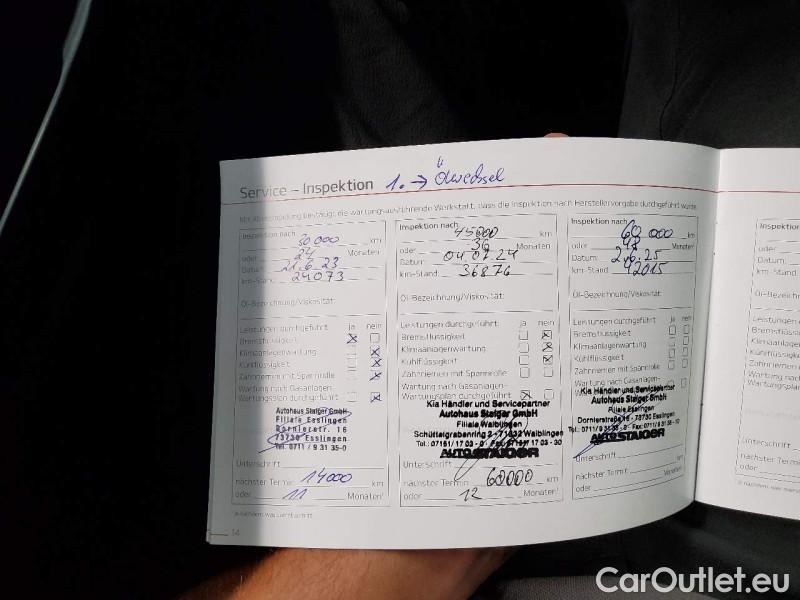 Service – Inspektion 1. → Ölwechsel
Mit Abstempelung bestätigt die wartungsausführende Werkstatt, dass die Inspektion nach Herstellervorgabe durchgeführt wurde.
Inspektion nach
30 000 km
oder 24 Monaten
Datum: 21.6.23
km-Stand: 24073
Öl-Bezeichnung/Viskosität:
Leistungen durchgeführt ja nein
Bremsflüssigkeit
Klimaanlagenwartung
Kühlflüssigkeit
Zahnriemen mit Spannrolle
Wartung nach Gasanlagen-
Wartungsplan durchgeführt
Autohaus Staiger GmbH
Filiale Esslingen
Dornierstr. 16
73730 Esslingen
Tel. 0711 / 9 31 35-0
Unterschrift
nächster Termin: 14000 km
oder 11 Monaten
14
Inspektion nach
45000 km
oder 36 Monaten
Datum: 04.07.24
km-Stand: 36876
Öl-Bezeichnung/Viskosität:
Leistungen durchgeführt: ja nein
Bremsflüssigkeit
Klimaanlagenwartung
Kühlflüssigkeit
Zahnriemen mit Spannrolle
Wartung nach Gasanlagen-
Wartungsplan durchgeführt
Kia Händler und Servicepartner
Autohaus Staiger GmbH
Filiale Waiblingen
Schüttelgrabenring 2 - 71332 Waiblingen
AUTO STAIGER
Unterschrift
nächster Termin: 60000 km
oder 12 Monaten
Inspektion nach
60 000 km
oder 48 Monaten
Datum: 2.6.25
km-Stand: 42015
Öl-Bezeichnung/Viskosität:
Leistungen durchgeführt: ja nein
Bremsflüssigkeit
Klimaanlagenwartung
Kühlflüssigkeit
Zahnriemen mit Spannrolle
Wartung nach Gasanlagen-
Kia Händler und Servicepartner
Autohaus Staiger GmbH
Filiale Esslingen
Dornierstraße 16 - 73730 Esslingen
AUTO STAIGER
Unterschrift
nächster Termin: km
oder Monaten
CarOutlet.eu